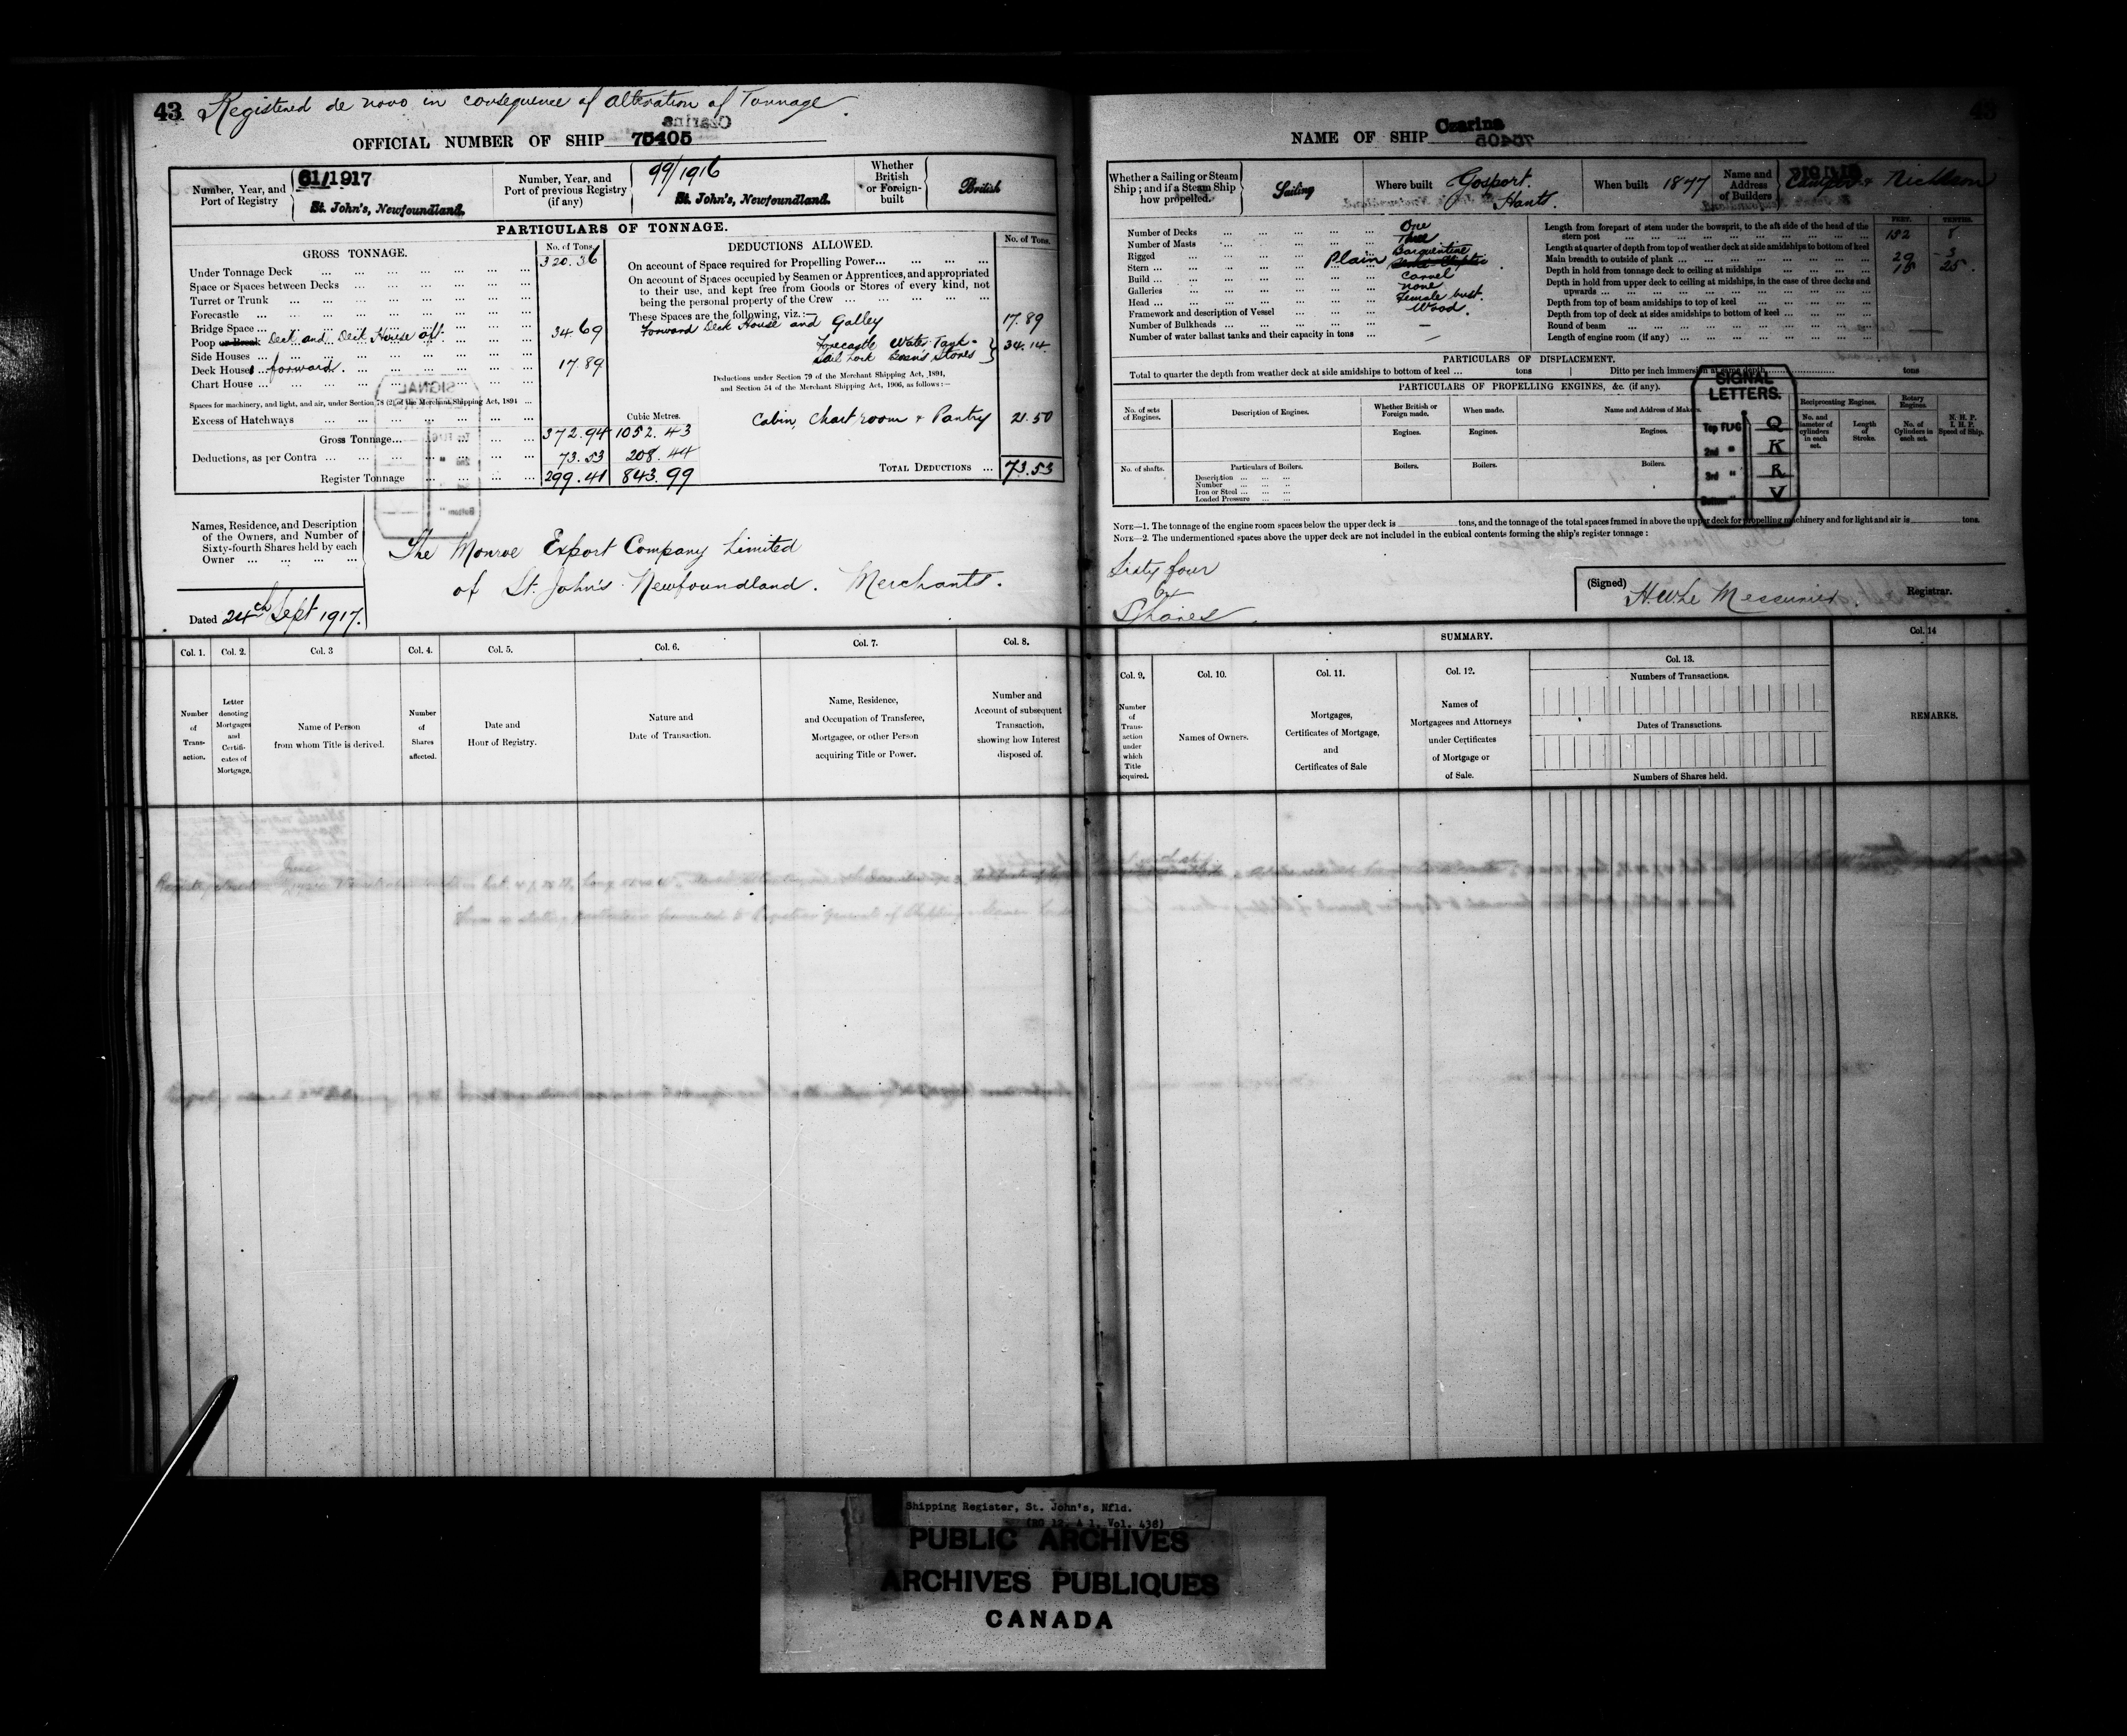 43 Registered de novo in consequence of alteration of Tonnage
OFFICIAL NUMBER OF SHIP 75405
Number, Year, and Port of Registry
61/1917
St. John's, Newfoundland.
Number, Year, and Port of previous Registry (if any)
99/1916
St. John's, Newfoundland.
Whether British or Foreign-built
British
PARTICULARS OF TONNAGE.
GROSS TONNAGE. No. of Tons.
Under Tonnage Deck 320.36
Space or Spaces between Decks
Turret or Trunk
Forecastle
Bridge Space
Poop or Break Deck and Deck House aft 34 69
Side Houses
Deck Houses forward. 17.89
Chart House
Spaces for machinery, and light, and air, under Section 78 (2) of the Merchant Shipping Act, 1894
Excess of Hatchways
Cubic Metres.
Gross Tonnage 372.94 1052.43
Deductions, as per Contra 73.53 208.44
Register Tonnage 299.41 843.99
DEDUCTIONS ALLOWED. No. of Tons.
On account of Space required for Propelling Power
On account of Spaces occupied by Seamen or Apprentices, and appropriated
to their use, and kept free from Goods or Stores of every kind, not
being the personal property of the Crew
These Spaces are the following, viz.:—
Forward Deck House and Galley 17.89
Forecastle Water Tank
Sail Lock Bosn's Stores } 34.14
Deductions under Section 79 of the Merchant Shipping Act, 1894,
and Section 54 of the Merchant Shipping Act, 1906, as follows:—
Cabin, Chart room & Pantry 21.50
TOTAL DEDUCTIONS 73.53
Names, Residence, and Description
of the Owners, and Number of
Sixty-fourth Shares held by each
Owner
The Monroe Export Company Limited
of St. John's Newfoundland. Merchants.
Dated 24th Sept 1917.
Col. 1. Col. 2. Col. 3 Col. 4. Col. 5. Col. 6. Col. 7. Col. 8.
Number of Trans- action.
Letter denoting Mortgages and Certifi- cates of Mortgage.
Name of Person from whom Title is derived.
Number of Shares affected.
Date and Hour of Registry.
Nature and Date of Transaction.
Name, Residence, and Occupation of Transferee, Mortgagee, or other Person acquiring Title or Power.
Number and Account of subsequent Transaction, showing how Interest disposed of.
NAME OF SHIP Czarina
Whether a Sailing or Steam Ship; and if a Steam Ship how propelled.
Sailing
Where built Gosport. Hants.
When built 1877
Name and Address of Builders
& Nicholson
Number of Decks One
Number of Masts Three
Rigged Barquentine
Stern Plain
Build Carvel
Galleries none
Head Female bust.
Framework and description of Vessel Wood.
Number of Bulkheads —
Number of water ballast tanks and their capacity in tons —
FEET. TENTHS.
Length from forepart of stem under the bowsprit, to the aft side of the head of the
stern post 152 8
Length at quarter of depth from top of weather deck at side amidships to bottom of keel
Main breadth to outside of plank 29 3
Depth in hold from tonnage deck to ceiling at midships 15 25
Depth in hold from upper deck to ceiling at midships, in the case of three decks and
upwards
Depth from top of beam amidships to top of keel
Depth from top of deck at sides amidships to bottom of keel
Round of beam
Length of engine room (if any)
PARTICULARS OF DISPLACEMENT.
Total to quarter the depth from weather deck at side amidships to bottom of keel tons Ditto per inch immersion at same depth tons
PARTICULARS OF PROPELLING ENGINES, &c. (if any).
No. of sets of Engines.
Description of Engines.
Whether British or Foreign made.
When made.
Name and Address of Makers.
Reciprocating Engines.
No. and diameter of cylinders in each set.
Length of Stroke.
Rotary Engines.
No. of Cylinders in each set.
N. H. P. I. H. P. Speed of Ship.
Engines. Engines. Engines.
No. of shafts. Particulars of Boilers. Boilers. Boilers. Boilers.
Description
Number
Iron or Steel
Loaded Pressure
SIGNAL LETTERS.
Top FLAG Q
2nd " K
3rd " R
Bottom " V
NOTE—1. The tonnage of the engine room spaces below the upper deck is tons, and the tonnage of the total spaces framed in above the upper deck for propelling machinery and for light and air is tons.
NOTE—2. The undermentioned spaces above the upper deck are not included in the cubical contents forming the ship's register tonnage:
Sixty four
64
Shares.
(Signed) H.W. Le Messurier. Registrar.
SUMMARY.
Col. 9. Col. 10. Col. 11. Col. 12. Col. 13. Col. 14
Number of Trans- action under which Title acquired.
Names of Owners.
Mortgages, Certificates of Mortgage, and Certificates of Sale
Names of Mortgagees and Attorneys under Certificates of Mortgage or of Sale.
Numbers of Transactions.
Dates of Transactions.
Numbers of Shares held.
REMARKS.
Shipping Register, St. John's, Nfld.
(RG 12, A 1, Vol. 436)
PUBLIC ARCHIVES
ARCHIVES PUBLIQUES
CANADA